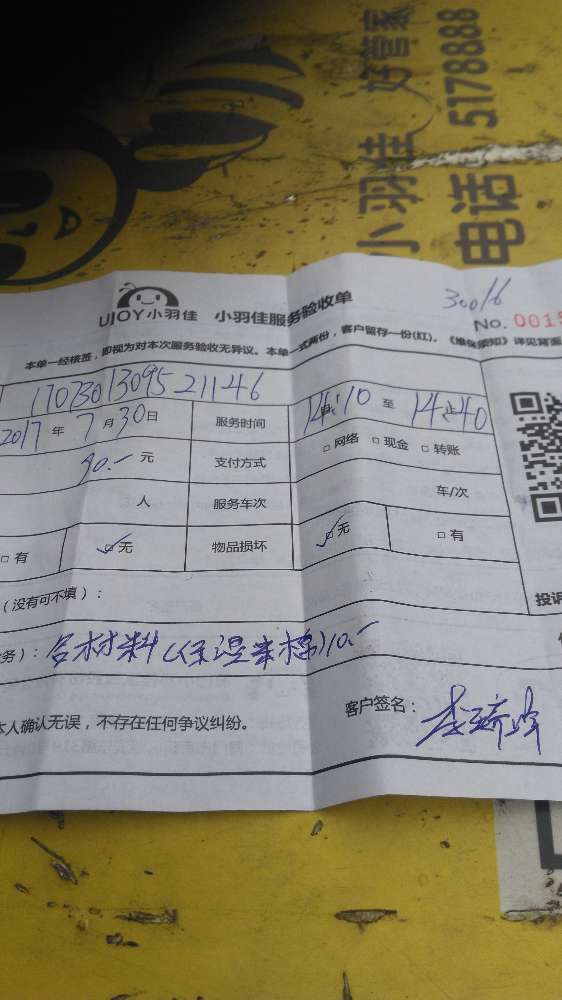 小羽佳 好管家
电话 5178888
300元
UJOY小羽佳 小羽佳服务验收单
No. 001
本单一经核签，即视为对本次服务验收无异议。本单一式两份，客户留存一份(红)。《维保须知》详见背面
1707301309521146
2017 年 7 月 30 日 服务时间 14:10 至 14:40
90.- 元 支付方式 □ 网络 □ 现金 □ 转账
人 服务车次 车/次
□ 有 ☑ 无 物品损坏 ☑ 无 □ 有
(没有可不填)：
投诉
务)：含材料(保温苯棉)10.-
本人确认无误，不存在任何争议纠纷。
客户签名：